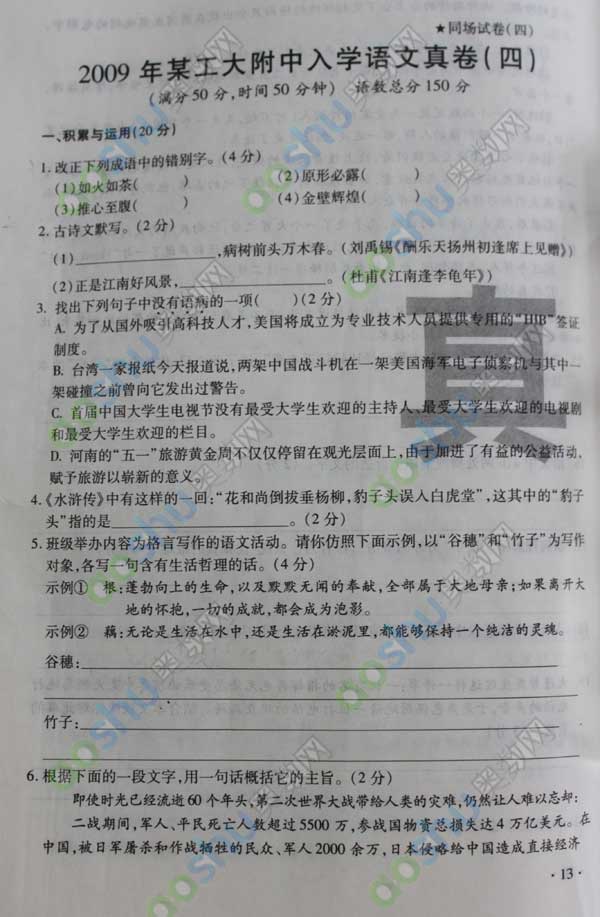 ★同场试卷(四)
2009年某工大附中入学语文真卷(四)
(满分50分,时间50分钟) 语数总分150分
一、积累与运用(20分)
1. 改正下列成语中的错别字。(4分)
(1)如火如茶( ) (2)原形必露( )
(3)推心至腹( ) (4)金壁辉煌( )
2. 古诗文默写。(2分)
(1)____________,病树前头万木春。(刘禹锡《酬乐天扬州初逢席上见赠》)
(2)正是江南好风景,____________。(杜甫《江南逢李龟年》)
3. 找出下列句子中没有语病的一项( )(2分)
A. 为了从国外吸引高科技人才,美国将成立为专业技术人员提供专用的“HIB”签证
制度。
B. 台湾一家报纸今天报道说,两架中国战斗机在一架美国海军电子侦察机与其中一
架碰撞之前曾向它发出过警告。
C. 首届中国大学生电视节没有最受大学生欢迎的主持人、最受大学生欢迎的电视剧
和最受大学生欢迎的栏目。
D. 河南的“五一”旅游黄金周不仅仅停留在观光层面上,由于加进了有益的公益活动,
赋予旅游以崭新的意义。
真
4.《水浒传》中有这样的一回:“花和尚倒拔垂杨柳,豹子头误入白虎堂”,这其中的“豹子
头”指的是____________。(2分)
5. 班级举办内容为格言写作的语文活动。请你仿照下面示例,以“谷穗”和“竹子”为写作
对象,各写一句含有生活哲理的话。(4分)
示例① 根:蓬勃向上的生命,以及默默无闻的奉献,全部属于大地母亲;如果离开大
地的怀抱,一切的成就,都会成为泡影。
示例② 藕:无论是生活在水中,还是生活在淤泥里,都能够保持一个纯洁的灵魂。
谷穗:____________
竹子:____________
6. 根据下面的一段文字,用一句话概括它的主旨。(2分)
即使时光已经流逝60个年头,第二次世界大战带给人类的灾难,仍然让人难以忘却:
二战期间,军人、平民死亡人数超过5500万,参战国物资总损失达4万亿美元。在
中国,被日军屠杀和作战牺牲的民众、军人2000余万,日本侵略给中国造成直接经济
·13·
aoshu奥数网